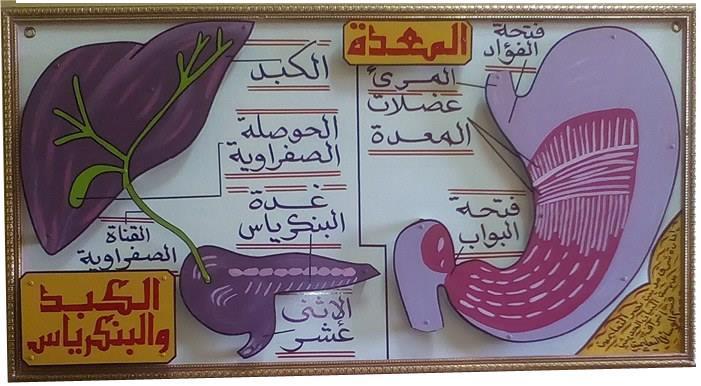 المعدة
فتحة
الفؤاد
المرئ
عضلات
المعدة
فتحة
البواب
الكبد
الحوصلة
الصفراوية
غدة
البنكرياس
القناة
الصفراوية
الاثنى
عشر
الكبد
والبنكرياس